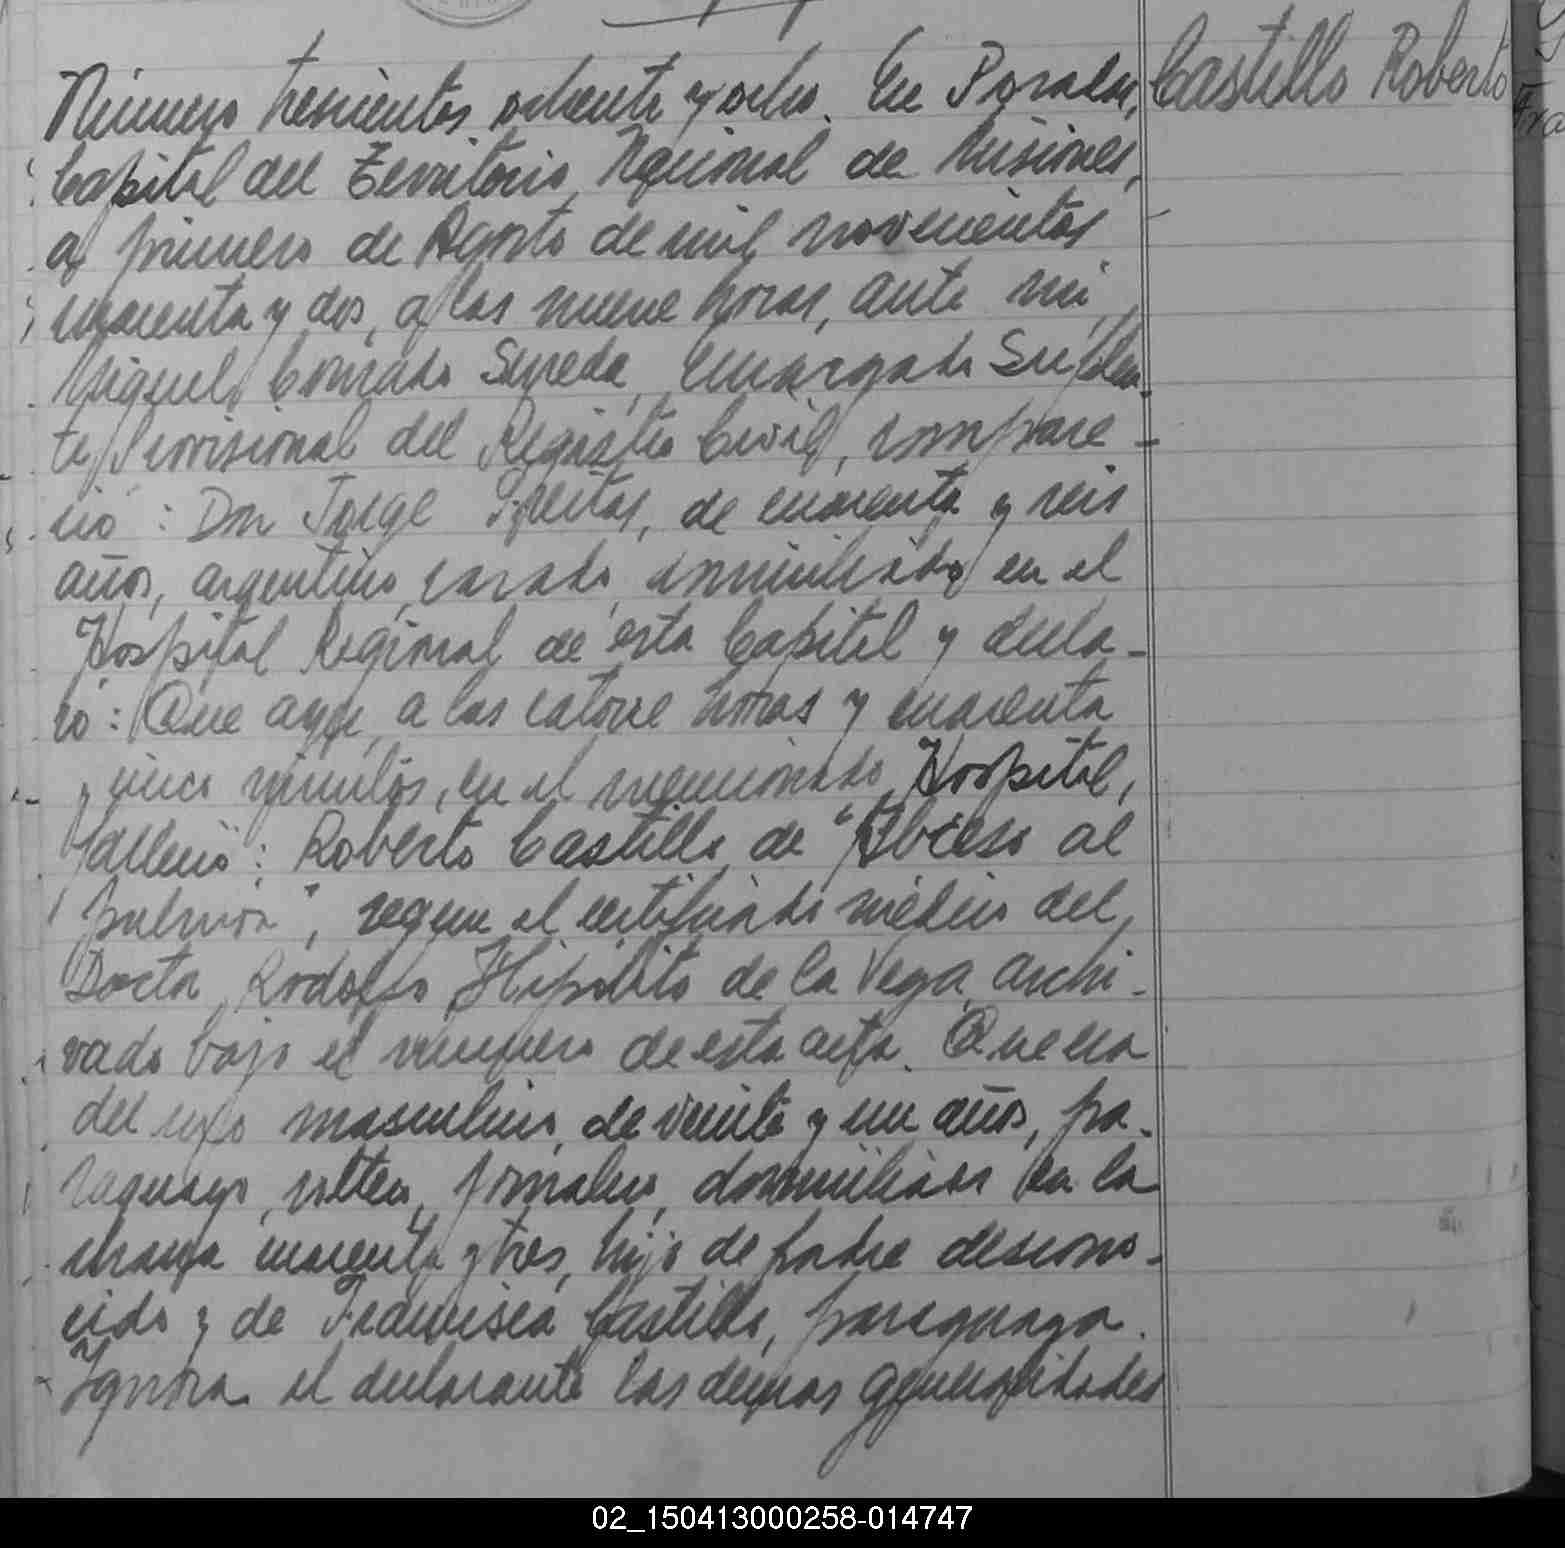 Número trescientos ochenta y ocho. En Posadas,
Castillo Roberto
Capital del Territorio Nacional de Misiones,
a primero de Agosto de mil novecientos
cuarenta y dos, a las nueve horas, ante mí,
Miguel Conrado Sureda, encargado Suplen-
te Provisional del Registro Civil, compare-
ció: Don Jorge Freitas, de cuarenta y seis
años, argentino, casado, domiciliado en el
Hospital Regional de esta Capital y decla-
ró: Que ayer, a las catorce horas y cuarenta
y cinco minutos, en el mencionado Hospital,
falleció: Roberto Castillo, de "Abceso al
pulmón", segun el certificado médico del
Doctor Rodolfo Hipólito de la Vega, archi-
vado bajo el numero de esta acta. Que era
del sexo masculino, de veinte y un años, pa-
raguayo, soltero, jornalero, domiciliado en la
chacra cuarenta y tres, hijo de padre descono-
cido y de Francisca Castillo, paraguaya.
Ignora el declarante las demas generalidades
02_150413000258-014747